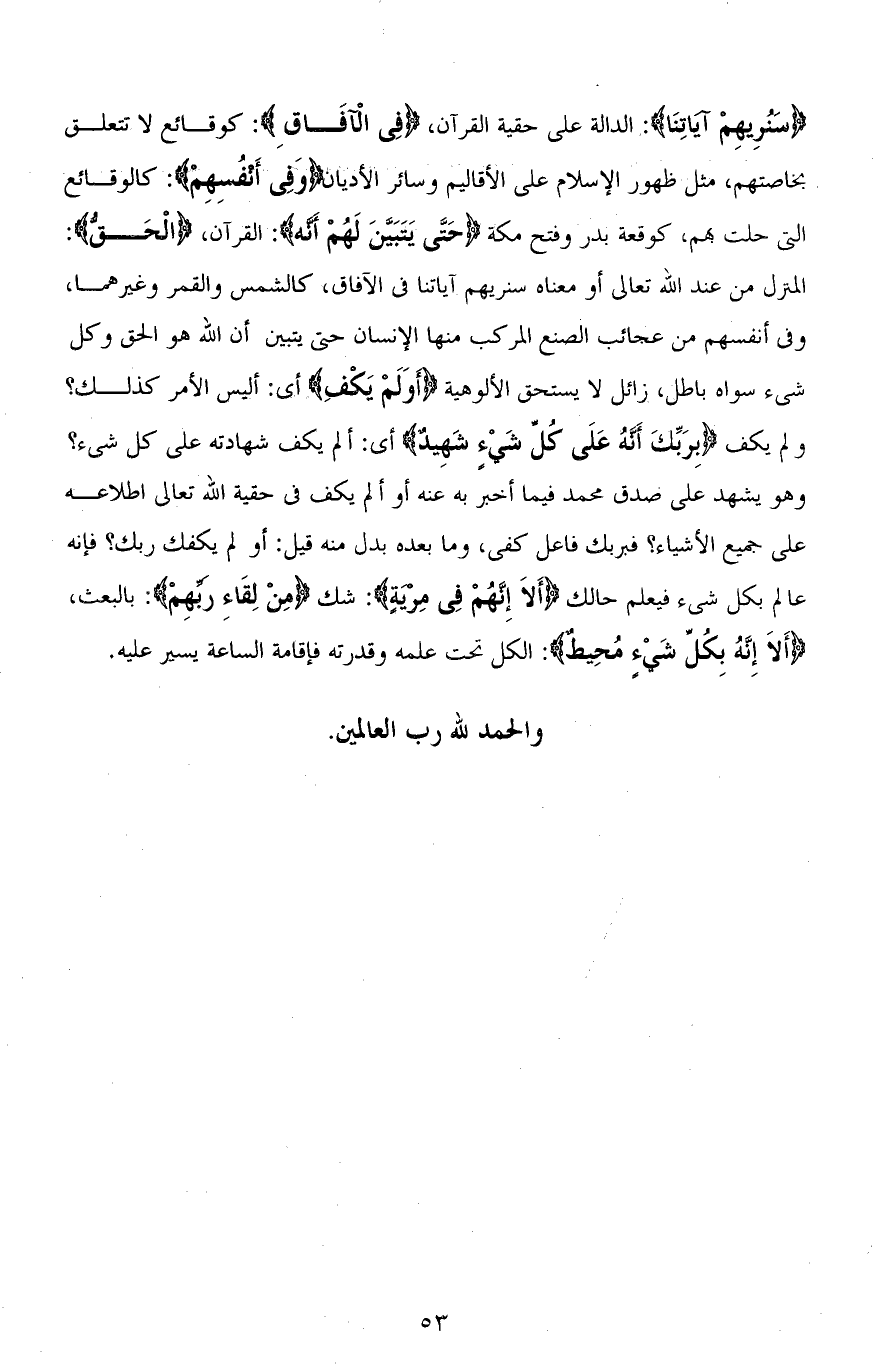 ﴿سَنُرِيهِمْ آيَاتِنَا﴾: الدالة على حقية القرآن، ﴿فِي الْآفَـــاقِ﴾: كوقـــائع لا تتعلـــق
بخاصتهم، مثل ظهور الإسلام على الأقاليم وسائر الأديان﴿وَفِي أَنْفُسِهِمْ﴾: كالوقـــائع
التى حلت بهم، كوقعة بدر وفتح مكة ﴿حَتَّى يَتَبَيَّنَ لَهُمْ أَنَّه﴾: القرآن، ﴿الْحَـــــقُّ﴾:
المنزل من عند الله تعالى أو معناه سنريهم آياتنا فى الآفاق، كالشمس والقمر وغيرهمـــا،
وفى أنفسهم من عجائب الصنع المركب منها الإنسان حتى يتبين أن الله هو الحق وكل
شىء سواه باطل، زائل لا يستحق الألوهية ﴿أَوَلَمْ يَكْفِ﴾ أى: أليس الأمر كذلـــك؟
ولم يكف ﴿بِرَبِّكَ أَنَّهُ عَلَى كُلِّ شَيْءٍ شَهِيدٌ﴾ أى: ألم يكف شهادته على كل شىء؟
وهو يشهد على صدق محمد فيما أخبر به عنه أو ألم يكف فى حقية الله تعالى اطلاعـــه
على جميع الأشياء؟ فبربك فاعل كفى، وما بعده بدل منه قيل: أو لم يكفك ربك؟ فإنه
عالم بكل شىء فيعلم حالك ﴿أَلاَ إِنَّهُمْ فِي مِرْيَةٍ﴾: شك ﴿مِنْ لِقَاءِ رَبِّهِمْ﴾: بالبعث،
﴿أَلاَ إِنَّهُ بِكُلِّ شَيْءٍ مُحِيطٌ﴾: الكل تحت علمه وقدرته فإقامة الساعة يسير عليه.
والحمد لله رب العالمين.
٥٣